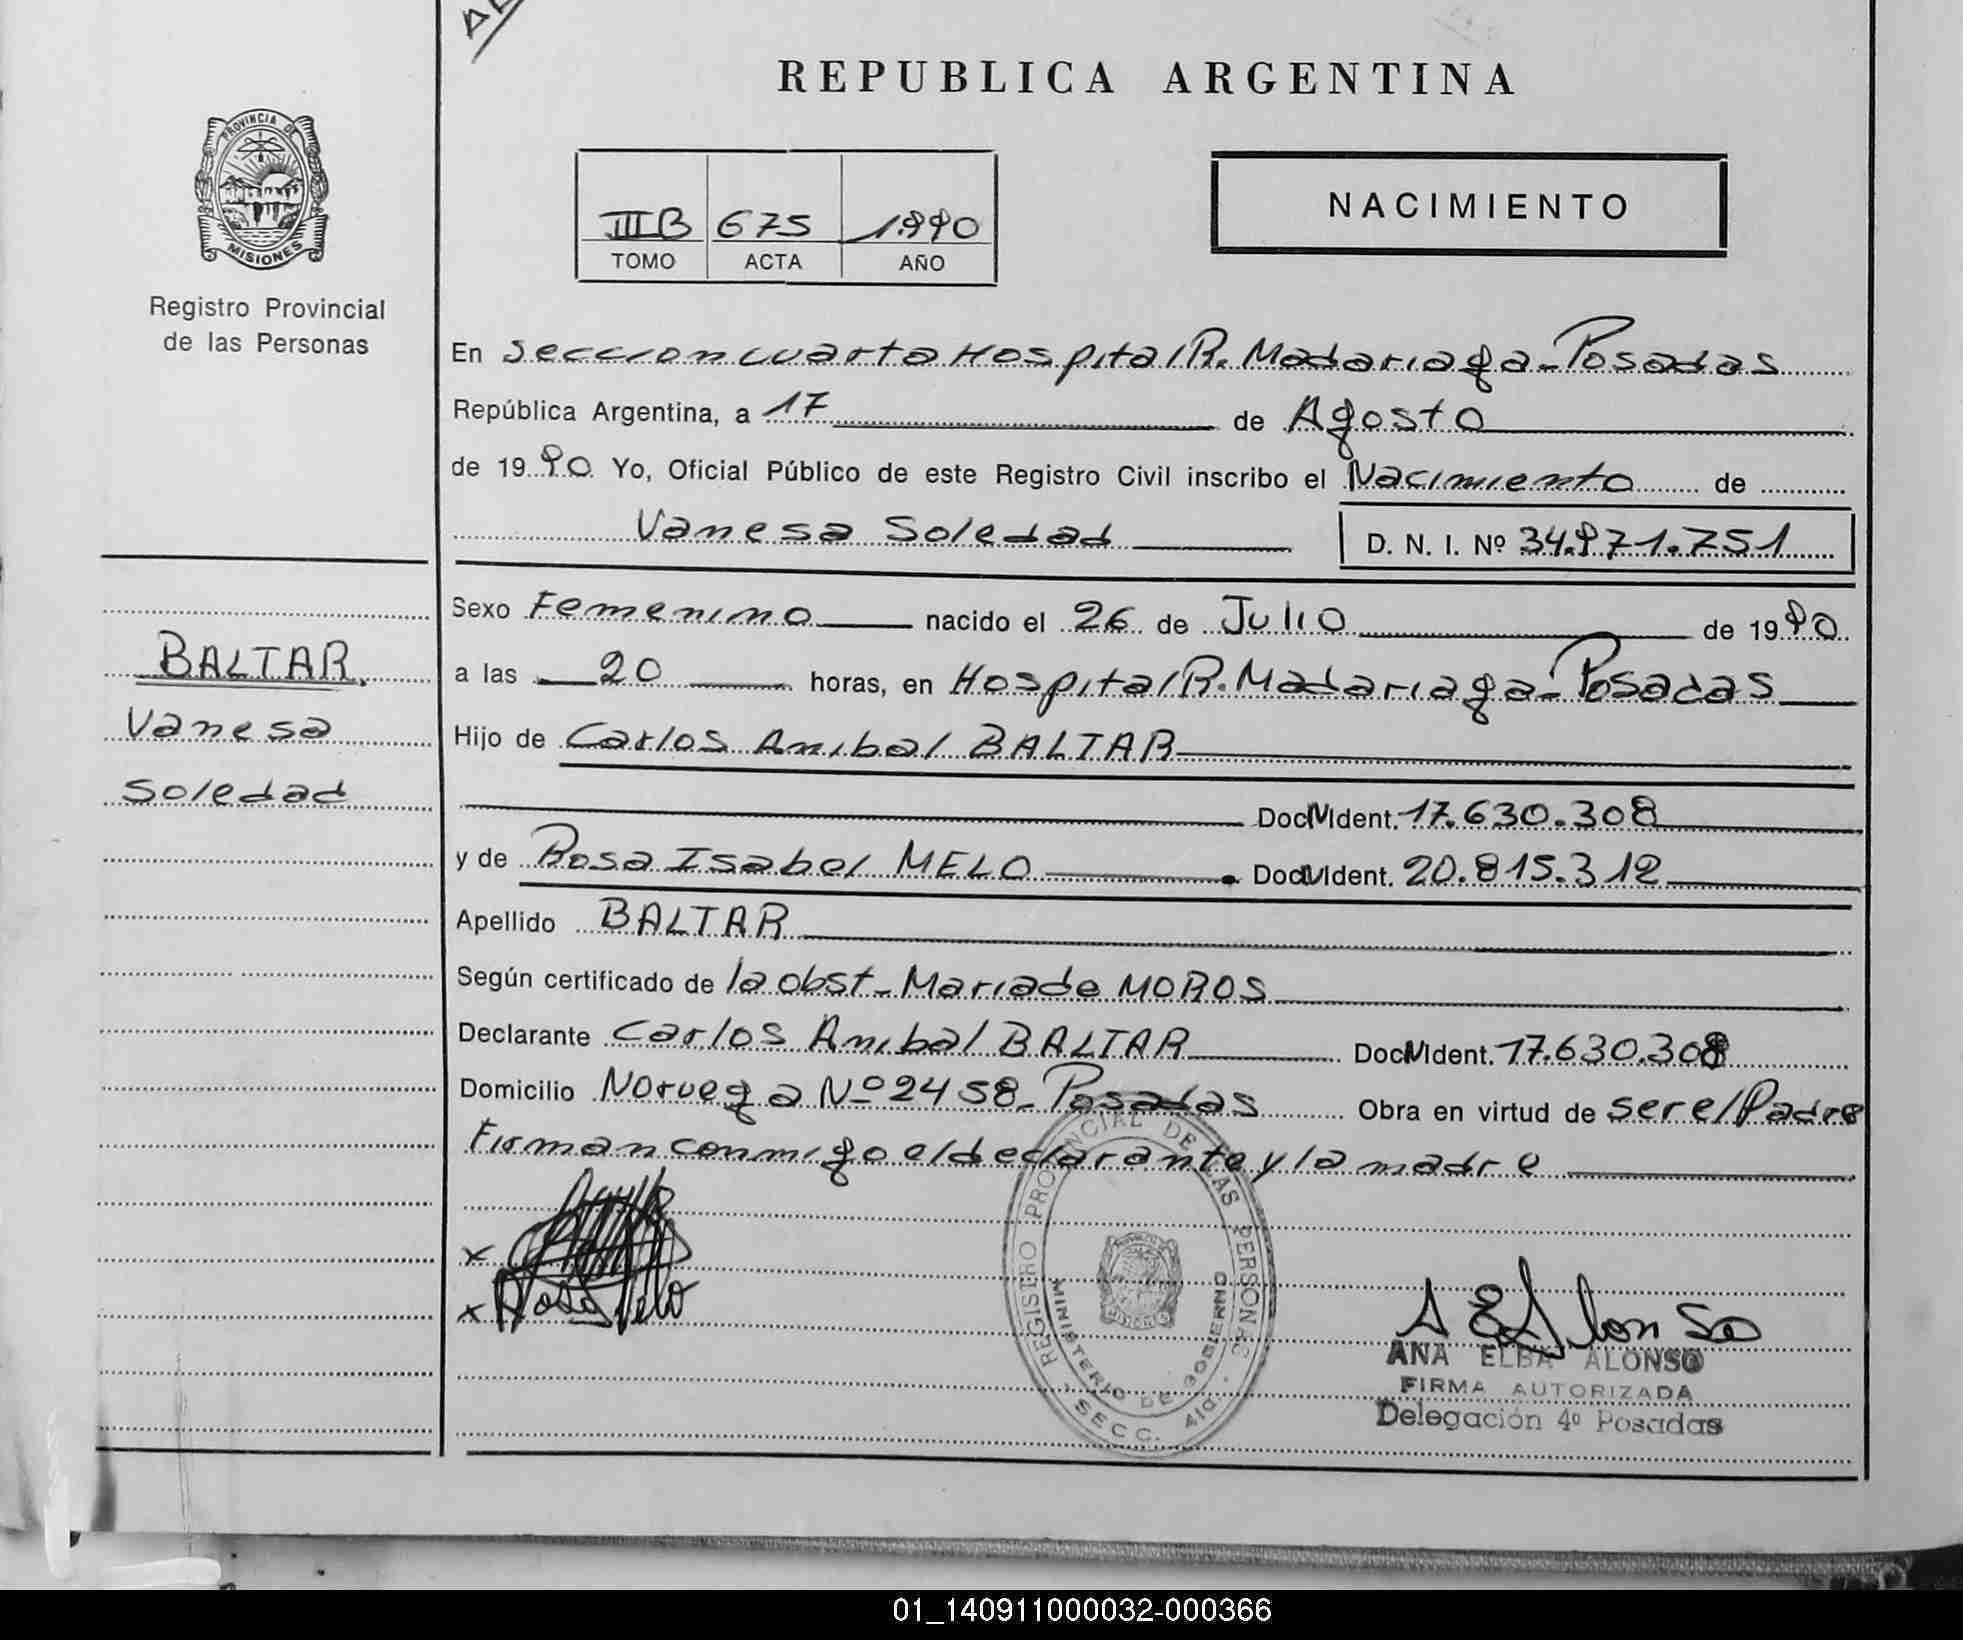 REPUBLICA ARGENTINA
PROVINCIA DE
MISIONES
Registro Provincial
de las Personas
III B 675 1.990
TOMO ACTA AÑO
NACIMIENTO
En Seccion cuarta Hospital R. Madariaga - Posadas
República Argentina, a 17 de Agosto
de 1990 Yo, Oficial Público de este Registro Civil inscribo el Nacimiento de
Vanesa Soledad D. N. I. Nº 34.971.751
Sexo Femenino nacido el 26 de Julio de 1990
a las 20 horas, en Hospital R. Madariaga - Posadas
Hijo de Carlos Anibal BALTAR
Doc N Ident. 17.630.308
y de Rosa Isabel MELO Doc N Ident. 20.815.312
Apellido BALTAR
Según certificado de la obst - Maria de MOROS
Declarante Carlos Anibal BALTAR Doc N Ident. 17.630.308
Domicilio Noruega Nº 2458 - Posadas Obra en virtud de ser el Padre
Firman conmigo el declarante y la madre
BALTAR,
Vanesa
Soledad
x
x Rosa Melo
REGISTRO PROVINCIAL DE LAS PERSONAS
MINISTERIO DE GOBIERNO
SECC. 4ta.
A E Alonso
ANA ELBA ALONSO
FIRMA AUTORIZADA
Delegación 4º Posadas
01_140911000032-000366